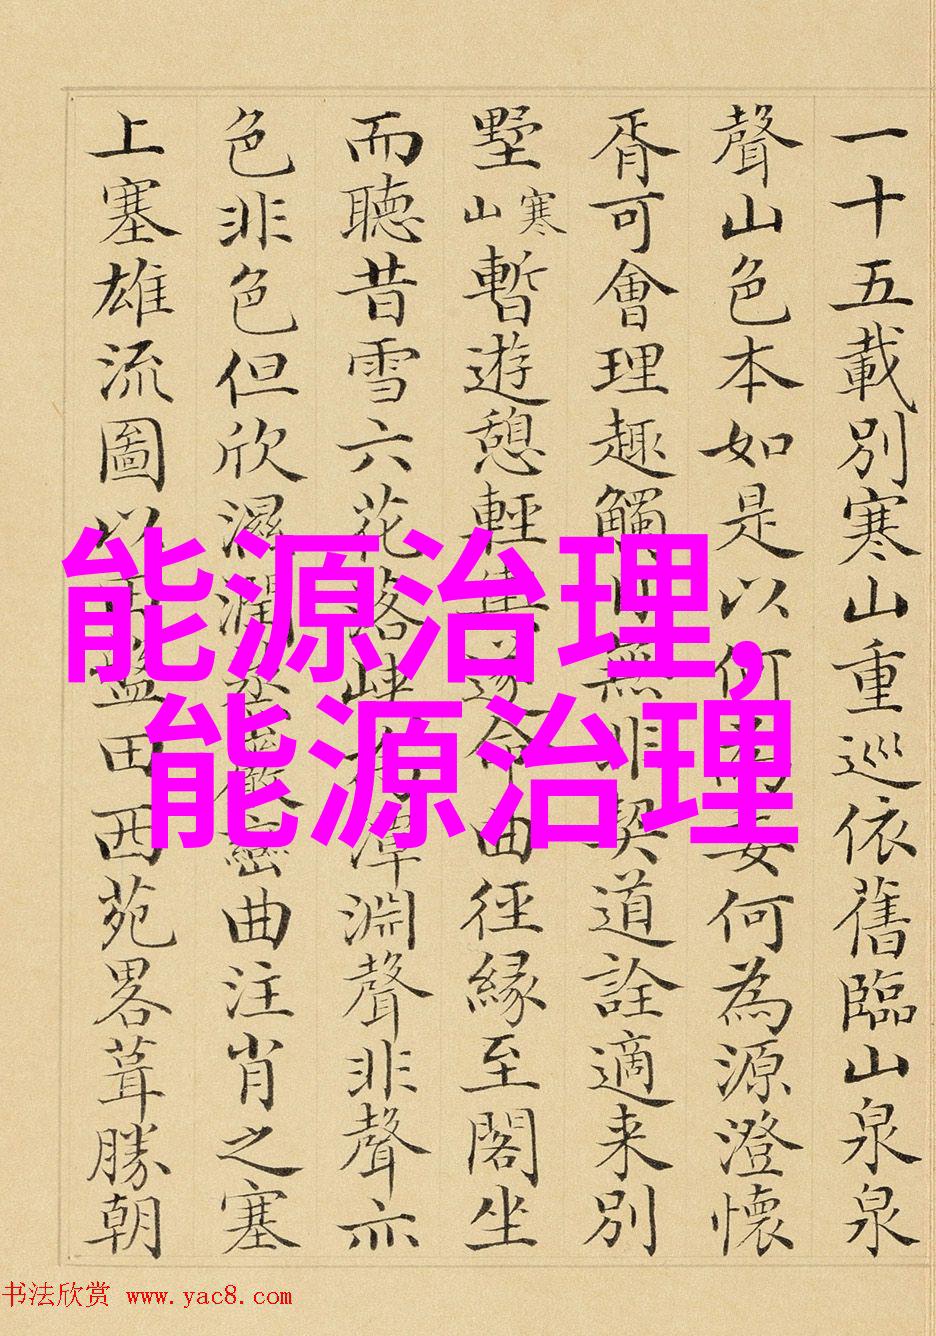 一十五載別寒山重巡依舊臨山泉泉
聲山色本如是以何妄何為源澄懷
胥可會理趣觸無非契道詮適来別
墅寒山暫遊憩輕命曲徑縁至閣坐
而聽昔雪六花落潭淵聲非聲亦
色非色但欣濕潤曲注肖之塞
上塞雄流圖以田西苑畧葺勝朝
能源治理,
能源治理
书法欣赏 www.yac8.com